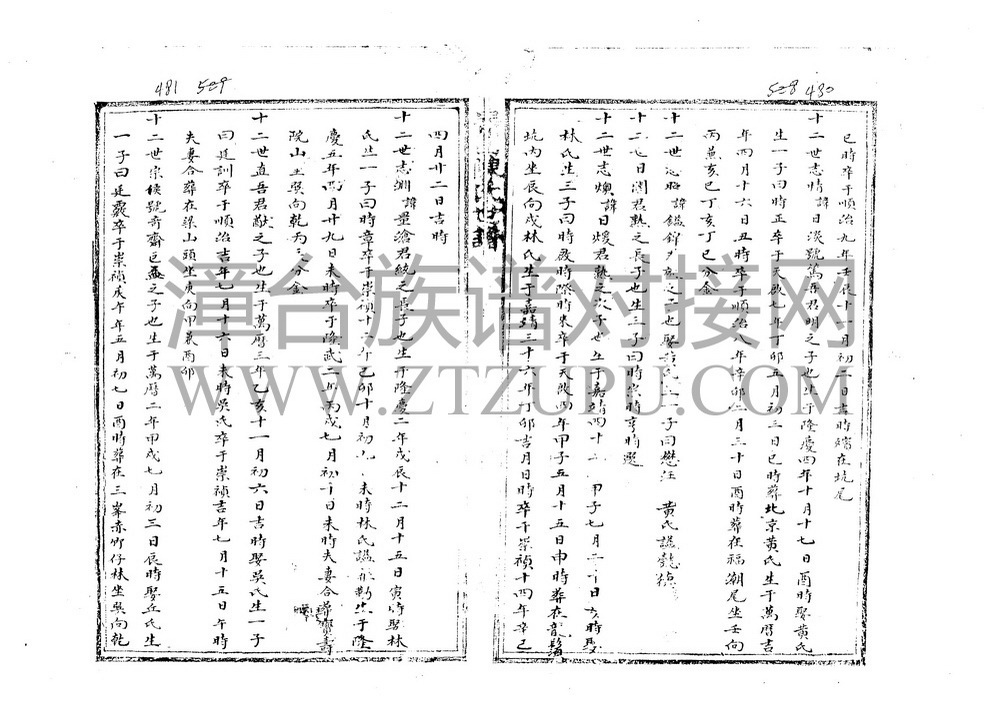 528 430
巳時卒于順治九年壬辰十一月初二日吉時墳在坑尾
十二世志時諱日淡號篤吾君明之子也生于隆慶四年十月十七日酉時娶黃氏
生一子曰時正卒于天啟七年丁卯五月初三日巳時葬北京黃氏生于萬曆吉
年四月十六日丑時卒于順治八年辛卯二月三十日酉時葬在福潮尾坐壬向
丙兼亥巳丁亥丁巳分金
十二世志 諱 之子也娶黃氏生一子曰懋 黃氏諡懿德
十二世日瀏君熟之長子也生三子曰時 時亨時選
十二世志煥諱日煖君熟之次子也生于嘉靖四十 甲子七月二十日亥時娶
林氏生三子曰時啟時際時來卒于天啟四年甲子五月十五日申時葬在龍鬚
坑內坐辰向戌林氏生于嘉靖三十六年丁卯吉月日時卒于崇禎十四年辛巳
陳氏世譜
481 529
四月廿二日吉時
十二世志淵諱景滄君統之長子也生于隆慶二年戊辰十二月十五日寅時娶林
氏生一子曰時章卒于崇禎十二年己卯十月初九 未時林氏諡 勤生于隆
慶五年四月廿九日未時卒于隆武二年丙戌七月初十日未時夫妻合葬
院山坐巽向乾丙 分金
十二世直吾君猷之子也生于萬曆三年乙亥十一月初六日吉時娶吳氏生一子
曰廷訓卒于順治吉年七月十六日未時吳氏卒于崇禎吉年七月十五日午時
夫妻合葬在梁山頭坐庚向甲兼酉卯
十二世宗候號奇齋 之子也生于萬曆二年甲戌七月初三日辰時娶丘氏生
一子曰廷 卒于崇禎庚午年五月初七日酉時葬在三峯赤竹仔林坐巽向乾
漳台族谱对接网
WWW.ZTZUPU.COM